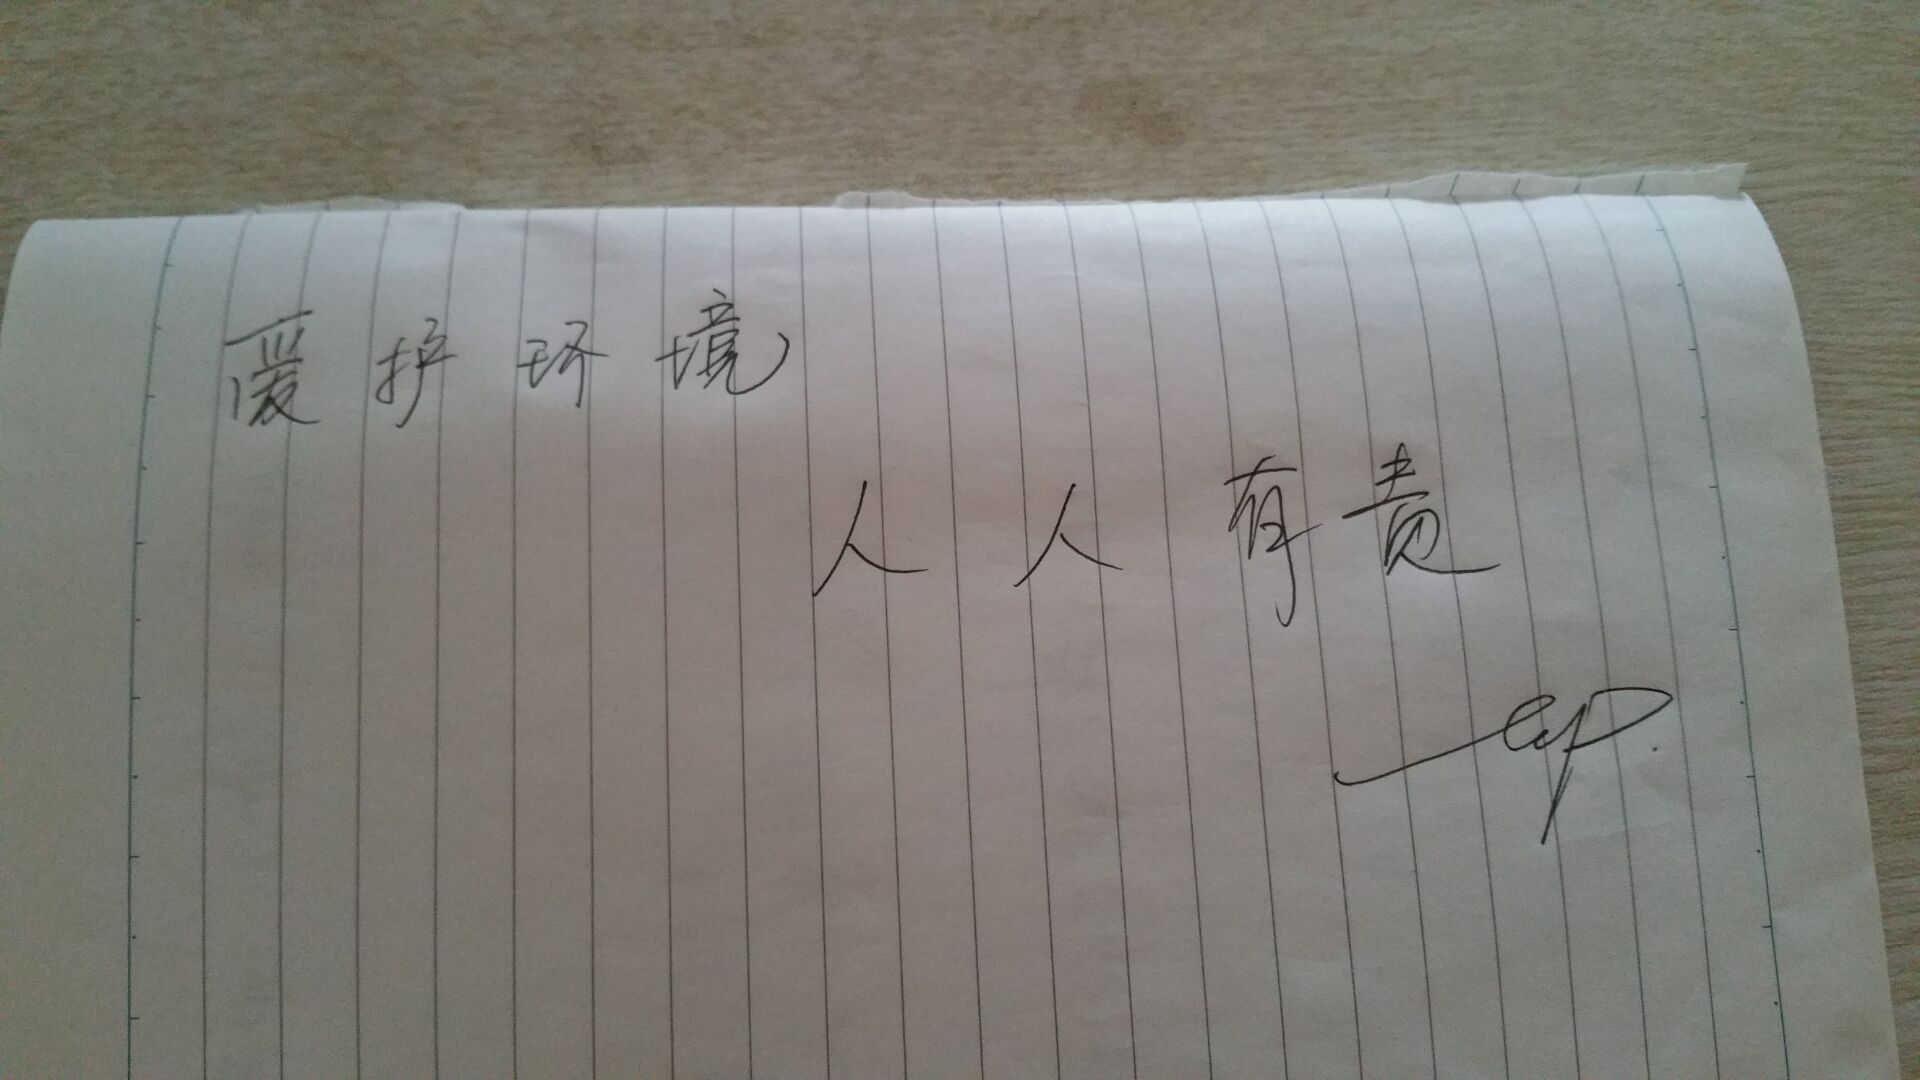 爱护环境
人人有责